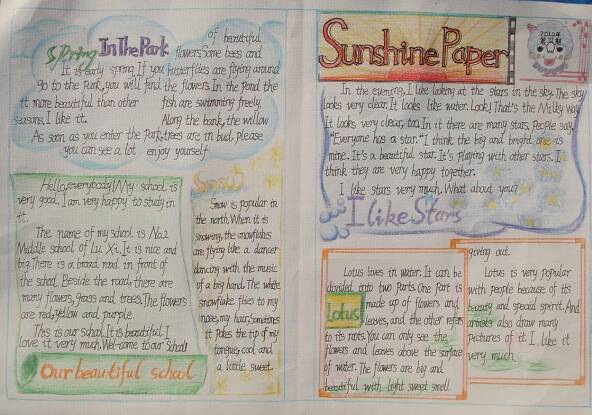 Spring In The Park
It is early spring. If you
go to the park, you will find
it more beautiful than other
seasons, I like it.
As soon as you enter the Park,
you can see a lot
of beautiful
flowers. Some bees and
butterflies are flying around
the flowers. In the pond the
fish are swimming freely.
Along the bank, the willow
trees are in bud, please
enjoy yourself
Hello, everybody! My school is
very good. I am very happy to study in
it.
The name of my school is No.2
Middle school of Lu Xi. It is nice and
big. There is a broad road in front of
the school. Beside the road, there are
many flowers, grass and trees. The flowers
are red, yellow and purple.
This is our School. It is beautiful. I
love it very much. Wel-come to our School!
Our beautiful school
Snow
Snow is popular in
the north. When it is
snowing, the snowflakes
are flying like a dancer
dancing with the music
of a big hand. The white
snowflake flies to my
nose, my hair, sometimes
it pokes the tip of my
tongue, cool and
a little sweet.
Sunshine Paper
2010年
In the evening, I like looking at the stars in the sky. The sky
looks very clear. It looks like water. Look! That's the Milky Way
It looks very clear, too. In it there are many stars. People say,
"Everyone has a star." I think the big and bright one is
mine. It's a beautiful star. It's playing with other stars. I
think they are very happy together.
I like stars very much. What about you?
I like Stars
Lotus lives in water. It can be
divided into two parts. One part is
made up of flowers and
leaves, and the other refers
to its roots. You can only see the
flowers and leaves above the surface
of water. The flowers are big and
beautiful with light sweet smell
Lotus
giving out.
Lotus is very popular
with people because of its
beauty and special spirit. And
artists also draw many
pictures of it. I like it
very much